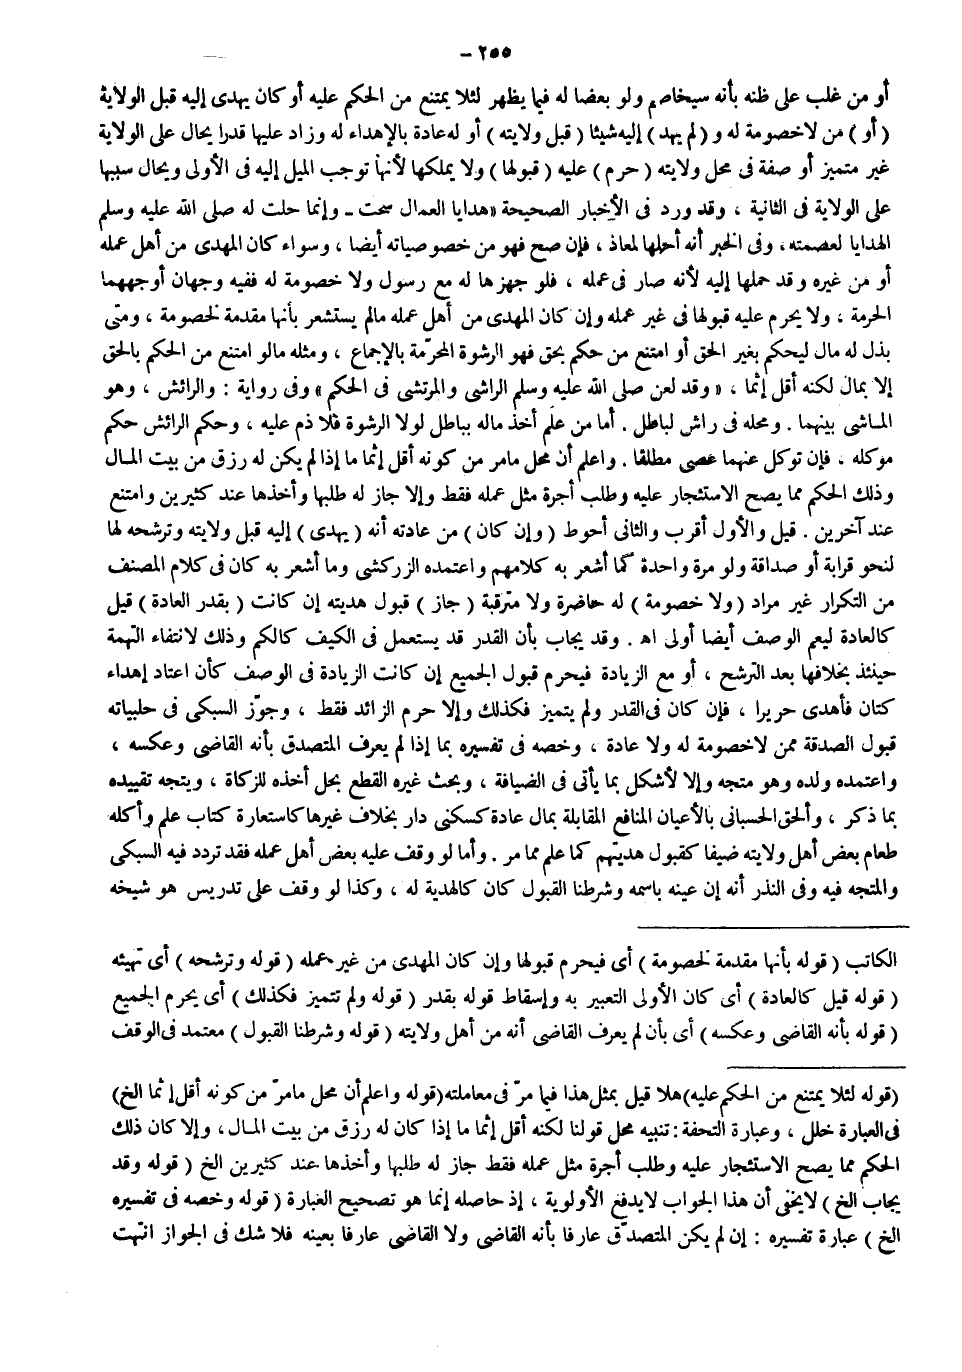 ٢٥٥ –
أو من غلب على ظنه بأنه سيخاصم ولو بعضا له فيما يظهر لئلا يمتنع من الحكم عليه أو كان يهدى إليه قبل الولاية
( أو ) من لا خصومة له و ( لم يهد ) إليه شيئا ( قبل ولايته ) أو له عادة بالإهداء له وزاد عليها قدرا يحال على الولاية
غير متميز أو صفة فى محل ولايته ( حرم ) عليه ( قبولها ) ولا يملكها لأنها توجب الميل إليه فى الأولى ويحال سببها
على الولاية فى الثانية ، وقد ورد فى الأخبار الصحيحة « هدايا العمال سحت ـ وإنما حلت له صلى الله عليه وسلم
الهدايا لعصمته ، وفى الخبر أنه أحلها لمعاذ ، فإن صح فهو من خصوصياته أيضا ، وسواء كان المهدى من أهل عمله
أو من غيره وقد حملها إليه لأنه صار فى عمله ، فلو جهزها له مع رسول ولا خصومة له ففيه وجهان أوجههما
الحرمة ، ولا يحرم عليه قبولها فى غير عمله وإن كان المهدى من أهل عمله مالم يستشعر بأنها مقدمة لخصومة ، ومتى
بذل له مال ليحكم بغير الحق أو امتنع من حكم بحق فهو الرشوة المحرّمة بالإجماع ، ومثله مالو امتنع من الحكم بالحق
إلا بمال لكنه أقل إثما ، « وقد لعن صلى الله عليه وسلم الراشى والمرتشى فى الحكم » وفى رواية : والرائش ، وهو
الماشى بينهما . ومحله فى راش لباطل . أما من علم أخذ ماله بباطل لولا الرشوة فلا ذم عليه ، وحكم الرائش حكم
موكله ، فإن توكل عنهما عصى مطلقا . واعلم أن محل مامر من كونه أقل إثما ما إذا لم يكن له رزق من بيت المال
وذلك الحكم مما يصح الاستئجار عليه وطلب أجرة مثل عمله فقط وإلا جاز له طلبها وأخذها عند كثيرين وامتنع
عند آخرين . قيل والأول أقرب والثانى أحوط ( وإن كان ) من عادته أنه ( يهدى ) إليه قبل ولايته وترشحه لها
لنحو قرابة أو صداقة ولو مرة واحدة كما أشعر به كلامهم واعتمده الزركشى وما أشعر به كان فى كلام المصنف
من التكرار غير مراد ( ولا خصومة ) له حاضرة ولا مترقبة ( جاز ) قبول هديته إن كانت ( بقدر العادة ) قيل
كالعادة ليعم الوصف أيضا أولى اه . وقد يجاب بأن القدر قد يستعمل فى الكيف كالكم وذلك لانتفاء التهمة
حينئذ بخلافها بعد الترشح ، أو مع الزيادة فيحرم قبول الجميع إن كانت الزيادة فى الوصف كأن اعتاد إهداء
كتان فأهدى حريرا ، فإن كان فى القدر ولم يتميز فكذلك وإلا حرم الزائد فقط ، وجوّز السبكى فى حلبياته
قبول الصدقة ممن لا خصومة له ولا عادة ، وخصه فى تفسيره بما إذا لم يعرف المتصدق بأنه القاضى وعكسه ،
واعتمده ولده وهو متجه وإلا لأشكل بما يأتى فى الضيافة ، وبحث غيره القطع بحل أخذه للزكاة ، ويتجه تقييده
بما ذكر ، وألحق الحسبانى بالأعيان المنافع المقابلة بمال عادة كسكنى دار بخلاف غيرها كاستعارة كتاب علم وأكله
طعام بعض أهل ولايته ضيفا كقبول هديتهم كما علم مما مر . وأما لو وقف عليه بعض أهل عمله فقد تردد فيه السبكى
والمتجه فيه وفى النذر أنه إن عينه باسمه وشرطنا القبول كان كالهدية له ، وكذا لو وقف على تدريس هو شيخه
الكاتب ( قوله بأنها مقدمة لخصومة ) أى فيحرم قبولها وإن كان المهدى من غير عمله ( قوله وترشحه ) أى تهيئه
( قوله قيل كالعادة ) أى كان الأولى التعبير به وإسقاط قوله بقدر ( قوله ولم تتميز فكذلك ) أى يحرم الجميع
( قوله بأنه القاضى وعكسه ) أى بأن لم يعرف القاضى أنه من أهل ولايته ( قوله وشرطنا القبول ) معتمد فى الوقف
(قوله لئلا يمتنع من الحكم عليه) هلا قيل بمثل هذا فيما مرّ فى معاملته (قوله واعلم أن محل مامرّ من كونه أقل إثما الخ)
فى العبارة خلل ، وعبارة التحفة : تنبيه محل قولنا لكنه أقل إثما ما إذا كان له رزق من بيت المال ، وإلا كان ذلك
الحكم مما يصح الاستئجار عليه وطلب أجرة مثل عمله فقط جاز له طلبها وأخذها عند كثيرين الخ ( قوله وقد
يجاب الخ ) لا يخفى أن هذا الجواب لا يدفع الأولوية ، إذ حاصله إنما هو تصحيح العبارة ( قوله وخصه فى تفسيره
الخ ) عبارة تفسيره : إن لم يكن المتصدّق عارفا بأنه القاضى ولا القاضى عارفا بعينه فلا شك فى الجواز انتهت